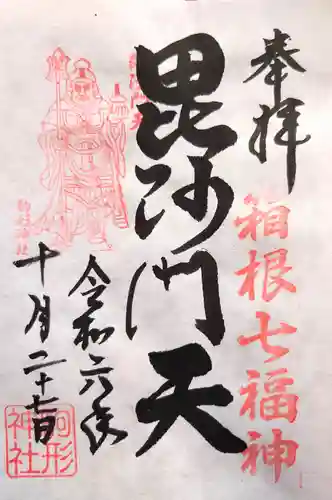 奉拝
箱根七福神
毘沙門天
令和六年
十月二十七日
駒形
神社